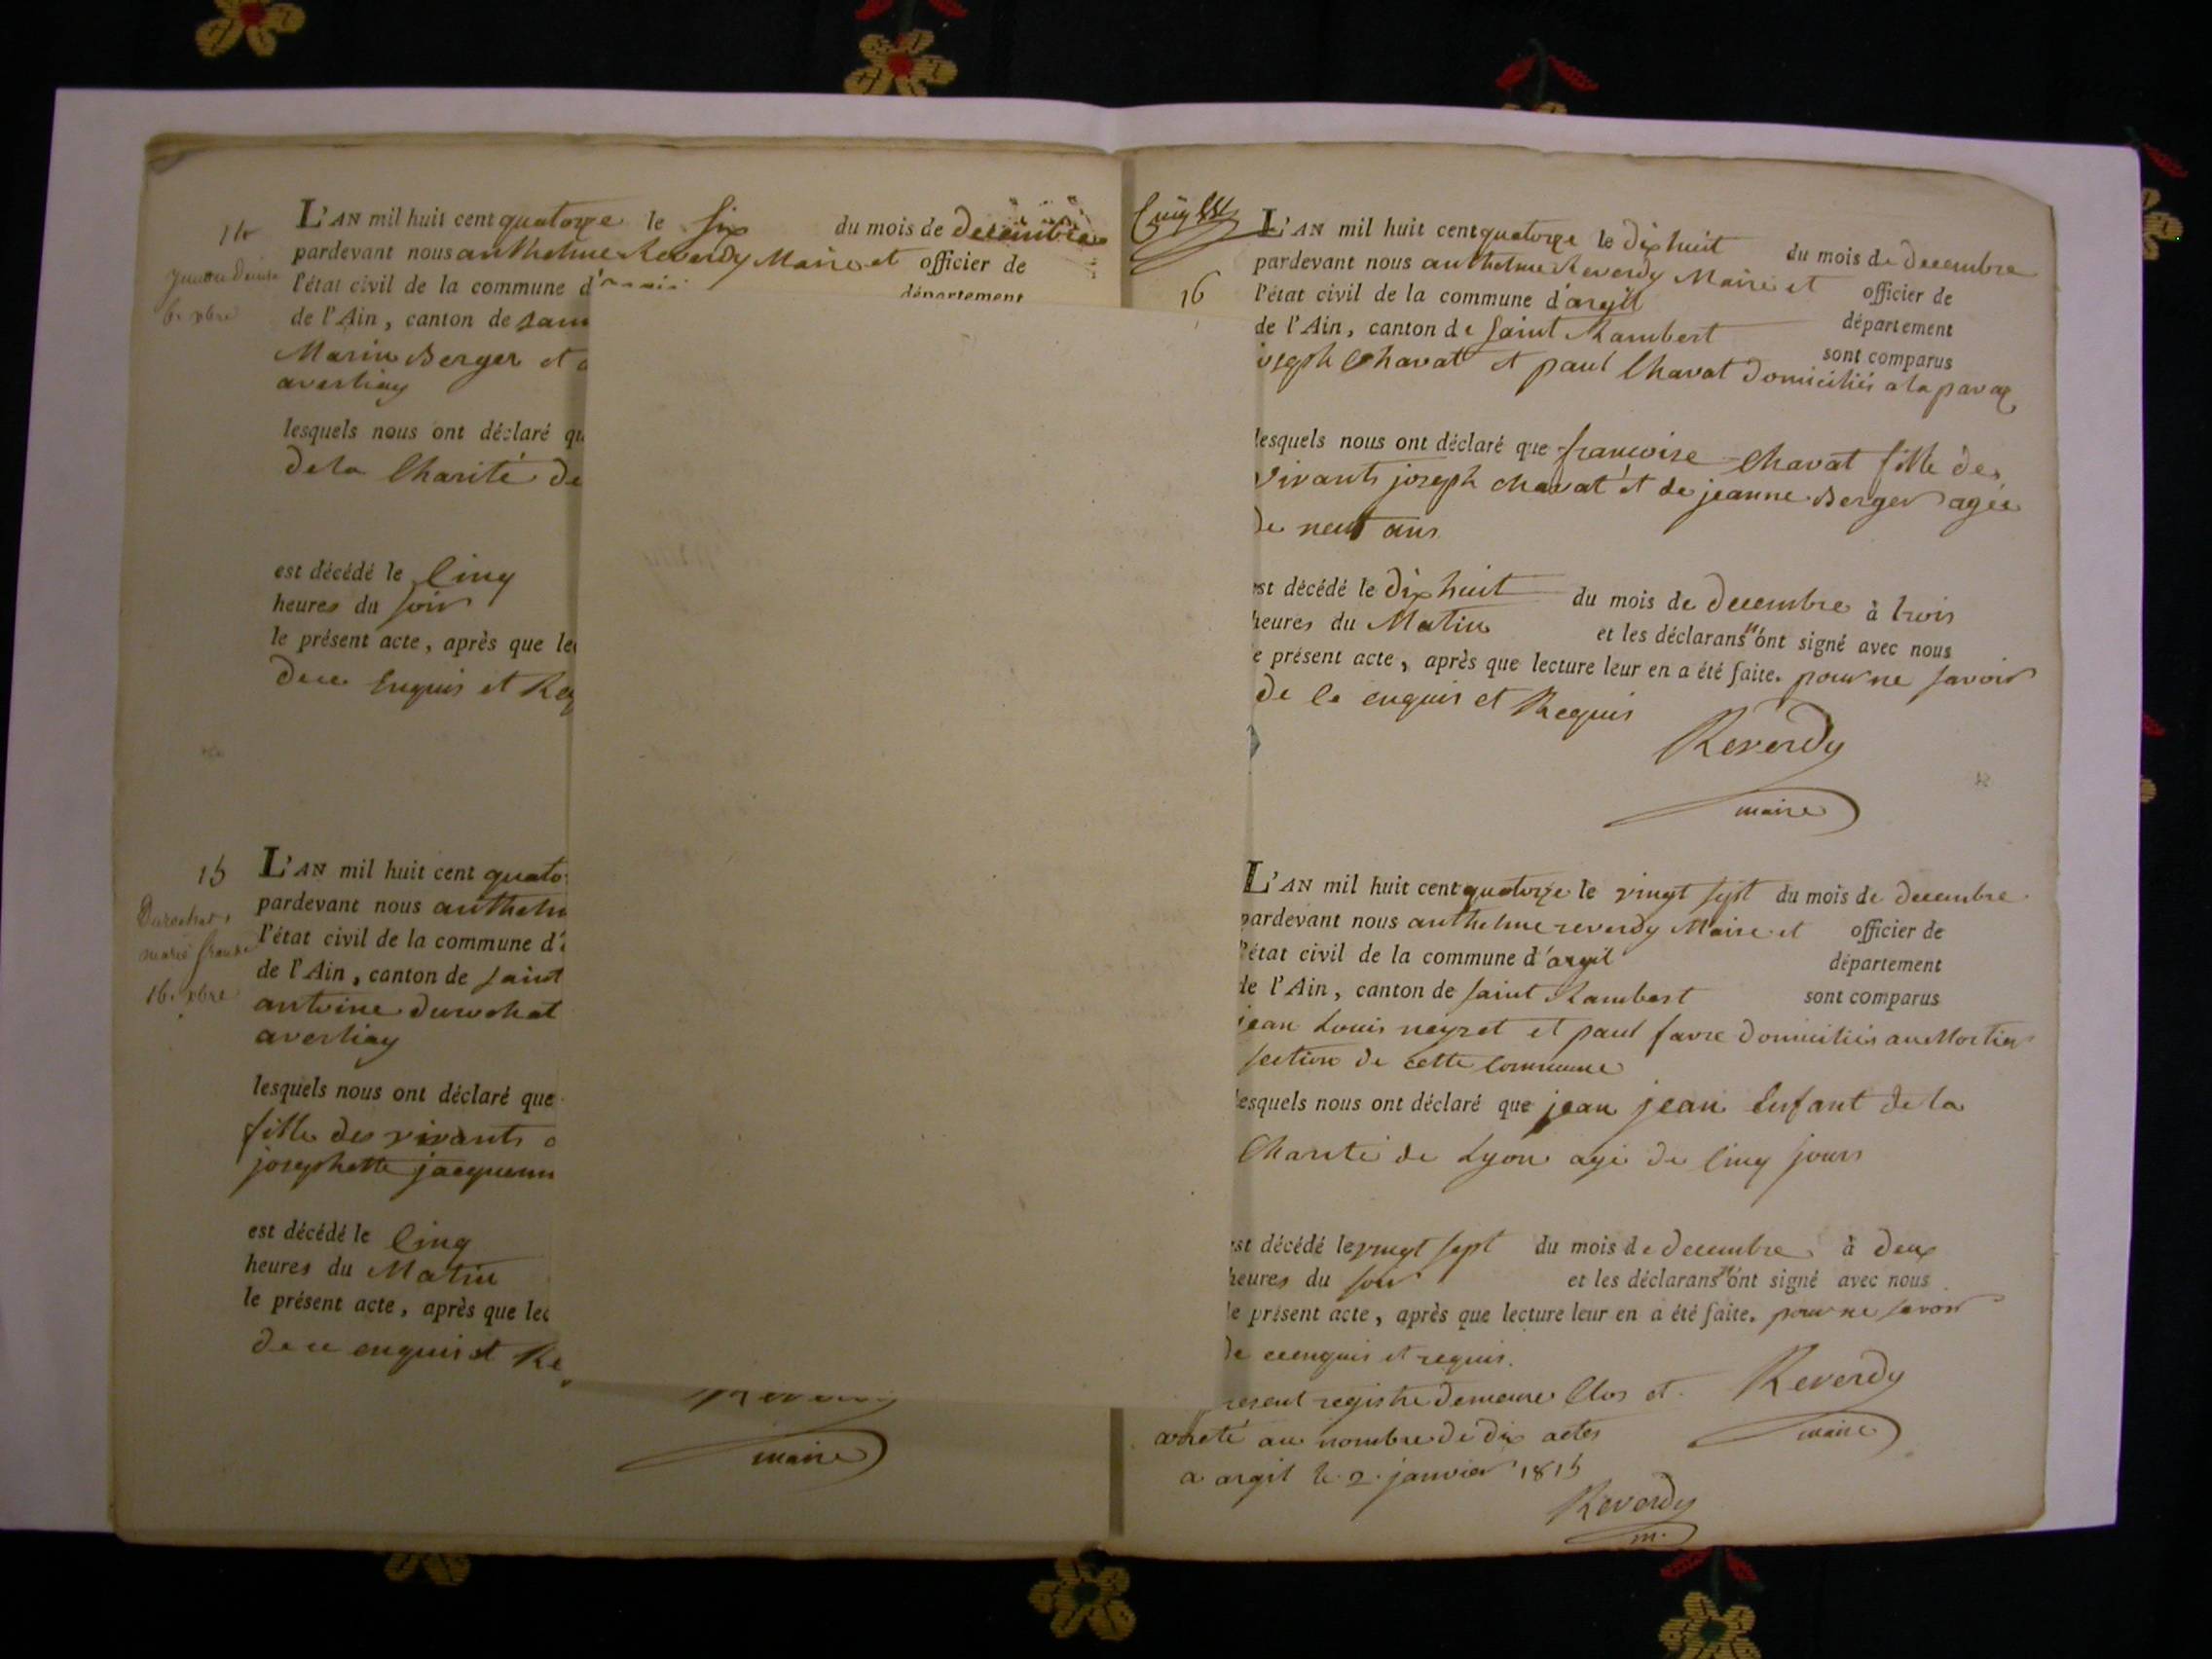 14
L'AN mil huit cent quatorze le six du mois de decembre
pardevant nous anthelme Reverdy Maire et officier de
l'état civil de la commune d'
département
de l'Ain, canton de
Marin Berger et
6. xbre
lesquels nous ont déclaré
de la Charité de
est décédé le cinq
heures du soir
le présent acte, après que
de ce enquis et
15
L'AN mil huit cent
pardevant nous
l'état civil de la commune d'
de l'Ain, canton de saint
antoine
16. xbre
lesquels nous ont déclaré que
fille des vivants
josephette
est décédé le cinq
heures du Matin
le présent acte, après que
de ce enquis et
maire
L'AN mil huit cent quatorze le dix huit du mois de decembre
pardevant nous anthelme Reverdy Maire et officier de
16
l'état civil de la commune d'argil
département
de l'Ain, canton de saint Rambert
sont comparus
joseph Chavat et paul Chavat domiciliés a la
lesquels nous ont déclaré que francoise Chavat fille des
vivants joseph chavat et de jeanne Berger agée
de neuf ans
est décédé le dix huit du mois de decembre à trois
heures du Matin et les déclarans n'ont signé avec nous
le présent acte, après que lecture leur en a été faite. pour ne savoir
de ce enquis et Requis
Reverdy
maire
L'AN mil huit cent quatorze le vingt sept du mois de decembre
pardevant nous anthelme reverdy Maire et officier de
l'état civil de la commune d'argil
département
de l'Ain, canton de saint Rambert sont comparus
jean Louis neyret et paul favre domiciliés au Mortier
section de cette commune
lesquels nous ont déclaré que jean jean Enfant de la
Charité de Lyon agé de cinq jours
est décédé le vingt sept du mois de decembre à deux
heures du soir et les déclarans n'ont signé avec nous
le présent acte, après que lecture leur en a été faite. pour ne savoir
de ce enquis et requis.
Reverdy
maire
present registre demeure Clos et
arreté au nombre de dix actes
a argil le 2. janvier 1815
Reverdy
m.